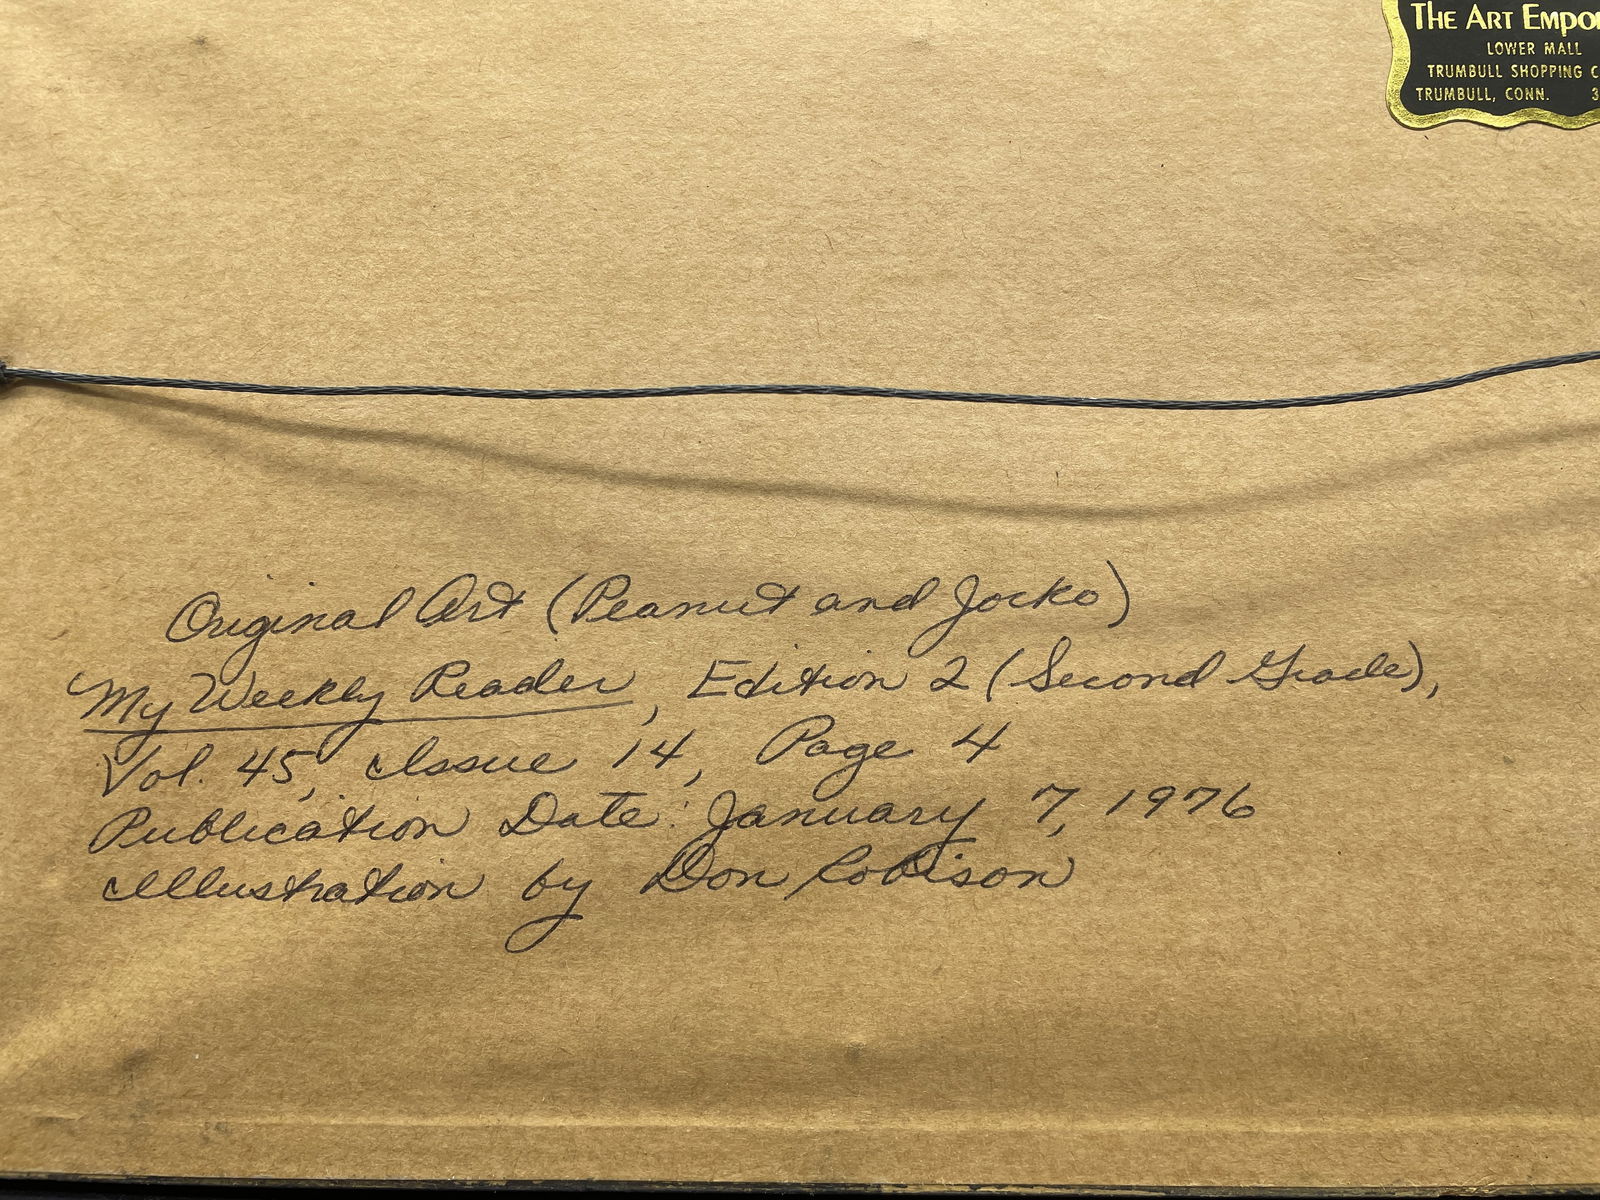 THE ART EMPO
LOWER MALL
TRUMBULL SHOPPING C
TRUMBULL, CONN. 3
Original Art (Peanut and Jocko)
My Weekly Reader, Edition 2 (Second Grade),
Vol. 45, Issue 14, Page 4
Publication Date: January 7, 1976
Illustration by Don Robison